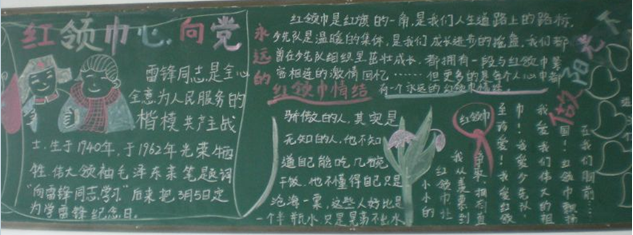 红领巾心向党
雷锋同志是全心
全意为人民服务的
楷模共产主战
士,生于1740年,于1962年光荣牺
牲,伟大领袖毛泽东亲笔题词
"向雷锋同志学习"后来把3月5日定
为学雷锋纪念日。
永远的
红领巾是红旗的一角,是我们人生道路上的路标,
少先队是温暖的集体,是我们成长进步的摇篮,我们都
曾在少先队组织里茁壮成长,都拥有一段与红领巾紧
密相连的激情回忆……但更多的是每个人心中都
红领巾情结 有一个永远的红领巾情结。
骄傲的人,其实是
无知的人,他不知
道自己能吃几碗
干饭,他不懂得自己只是
沧海一粟,这些人好比是
一个半瓶水
红领巾
小小的
我从
巾!我爱少先队
我爱我们伟大的祖
国!红领巾飘扬
在我们胸前
做